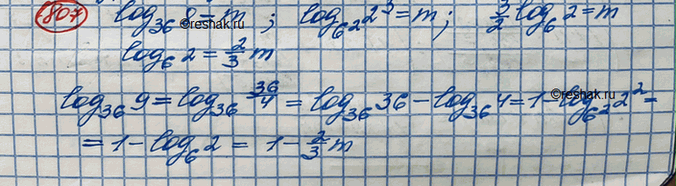 807 log₃₆ 8 = m ; log_{6²} 2³ = m ; 3/2 log₆ 2 = m
log₆ 2 = 2/3 m
log₃₆ 9 = log₃₆ 36/4 = log₃₆ 36 - log₃₆ 4 = 1 - log_{6²} 2² =
= 1 - log₆ 2 = 1 - 2/3 m
©reshak.ru
©reshak.ru